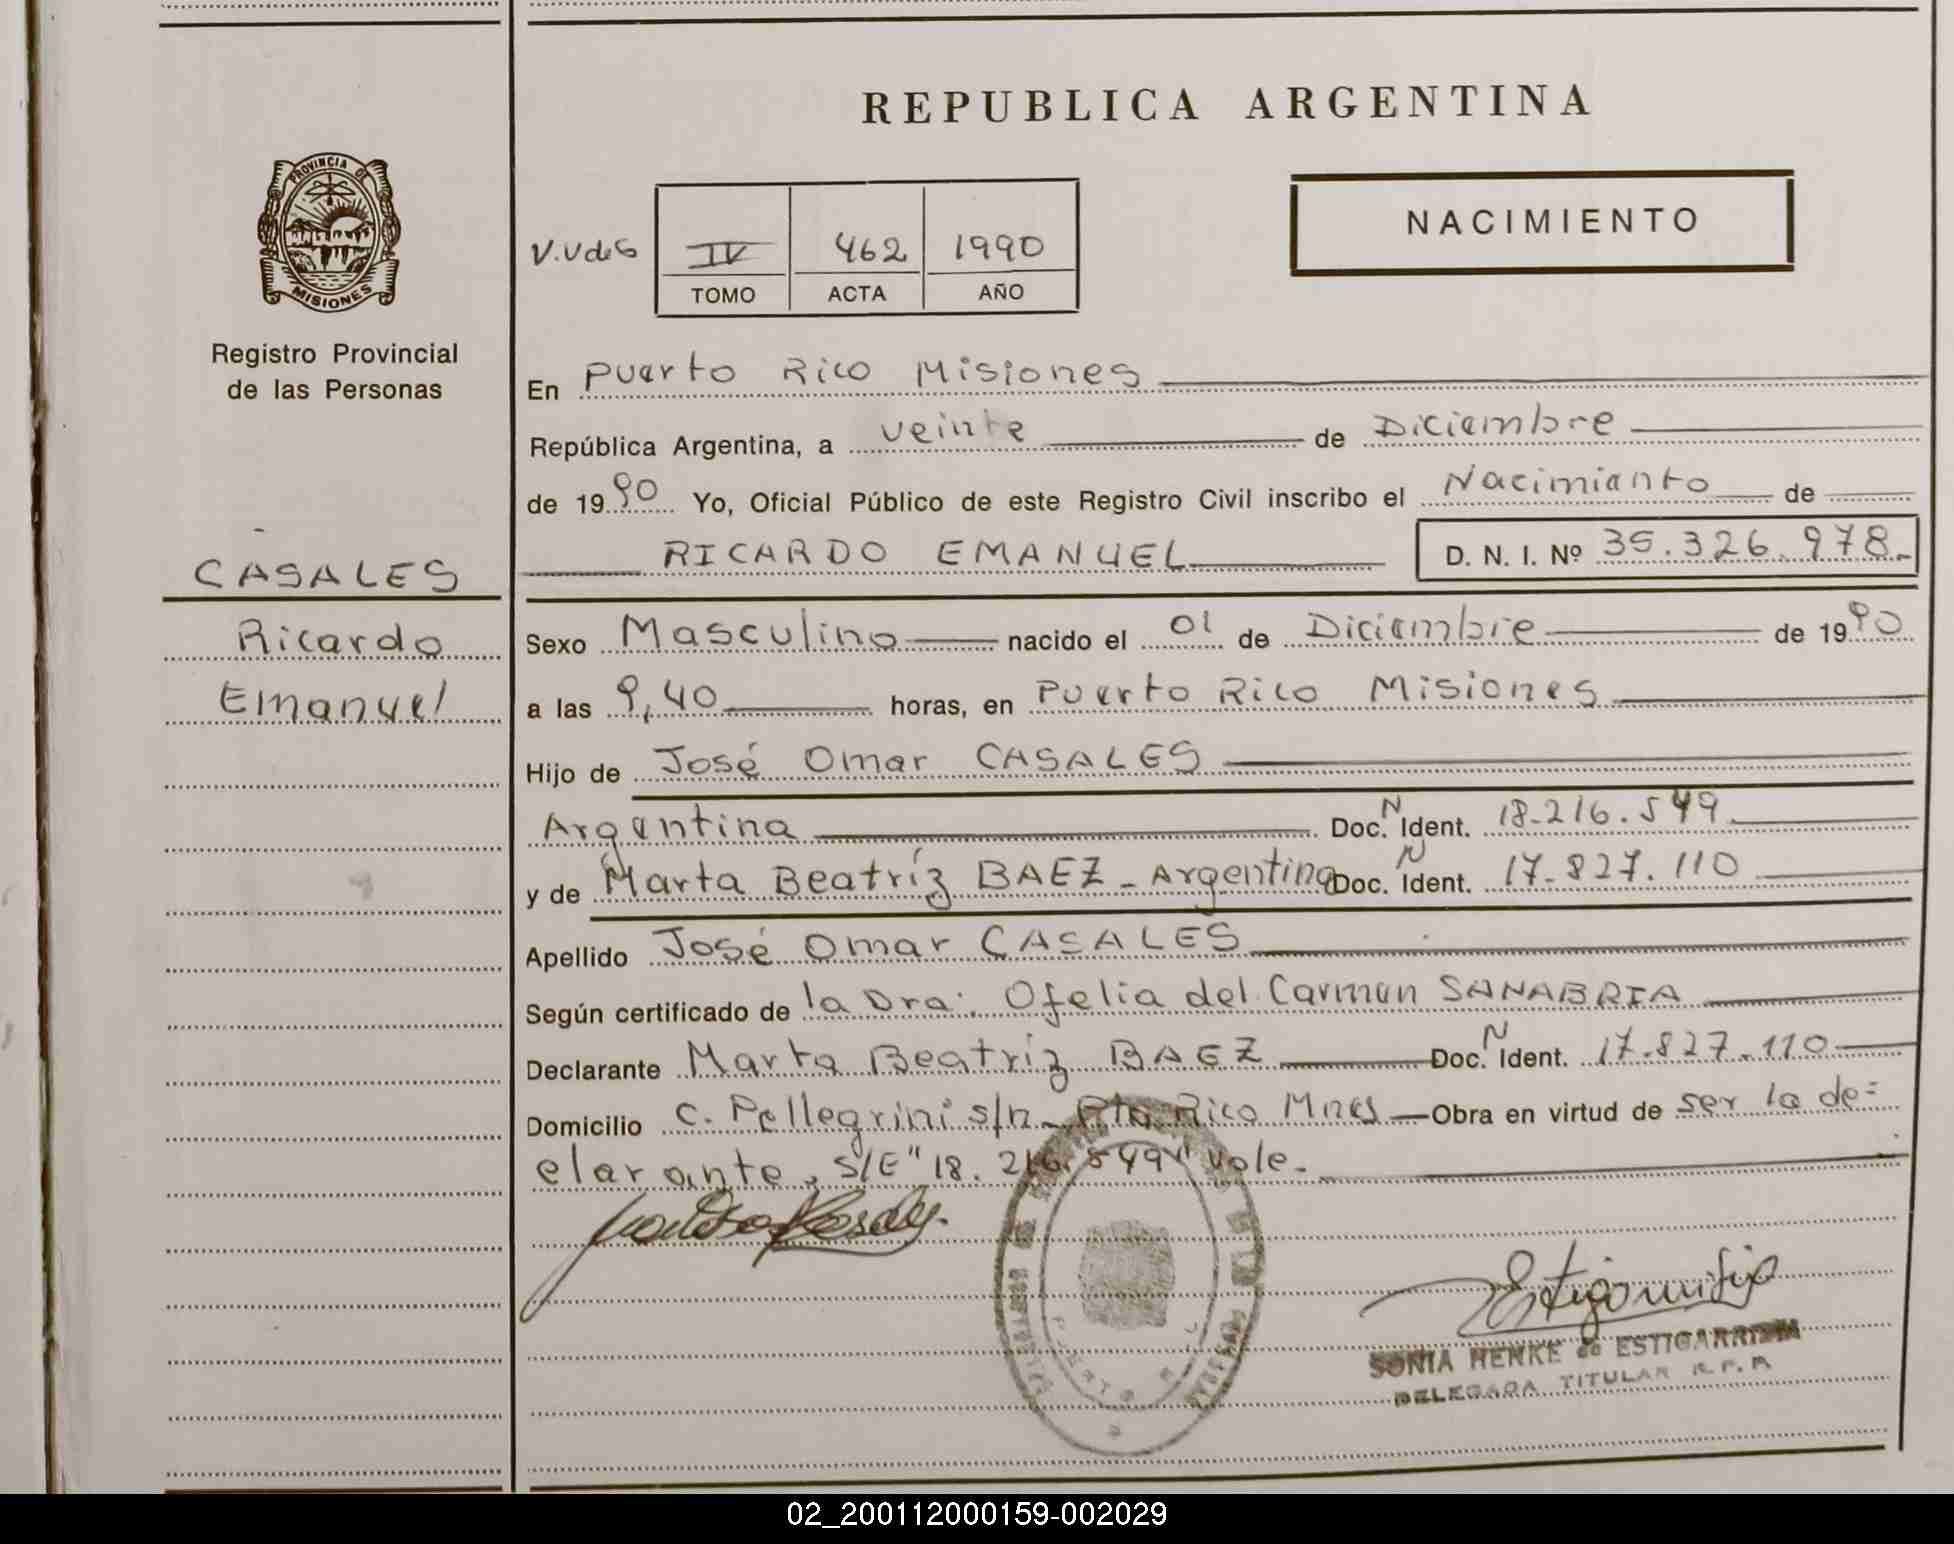 REPUBLICA ARGENTINA
PROVINCIA DE
MISIONES
Registro Provincial
de las Personas
NACIMIENTO
V.Vdes
IV 462 1990
TOMO ACTA AÑO
En Puerto Rico Misiones
República Argentina, a veinte de Diciembre
de 1990 Yo, Oficial Público de este Registro Civil inscribo el Nacimiento de
RICARDO EMANUEL D. N. I. Nº 35.326.978.-
CASALES
Ricardo
Emanuel
Sexo Masculino nacido el 01 de Diciembre de 1990
a las 9,40 horas, en Puerto Rico Misiones
Hijo de José Omar CASALES
Argentina Doc. N Ident. 18.216.549
y de Marta Beatríz BAEZ - Argentina Doc. N Ident. 17.827.110
Apellido José Omar CASALES
Según certificado de la Dra. Ofelia del Carmen SANABRIA
Declarante Marta Beatríz BAEZ Doc. N Ident. 17.827.110
Domicilio C. Pellegrini s/n - Pto Rico Mnes Obra en virtud de ser la de=
clarante, S/E" 18.216.549" Vale.-
SONIA HENKE de ESTIGARRIBIA
DELEGADA TITULAR R.P.P.
02_200112000159-002029